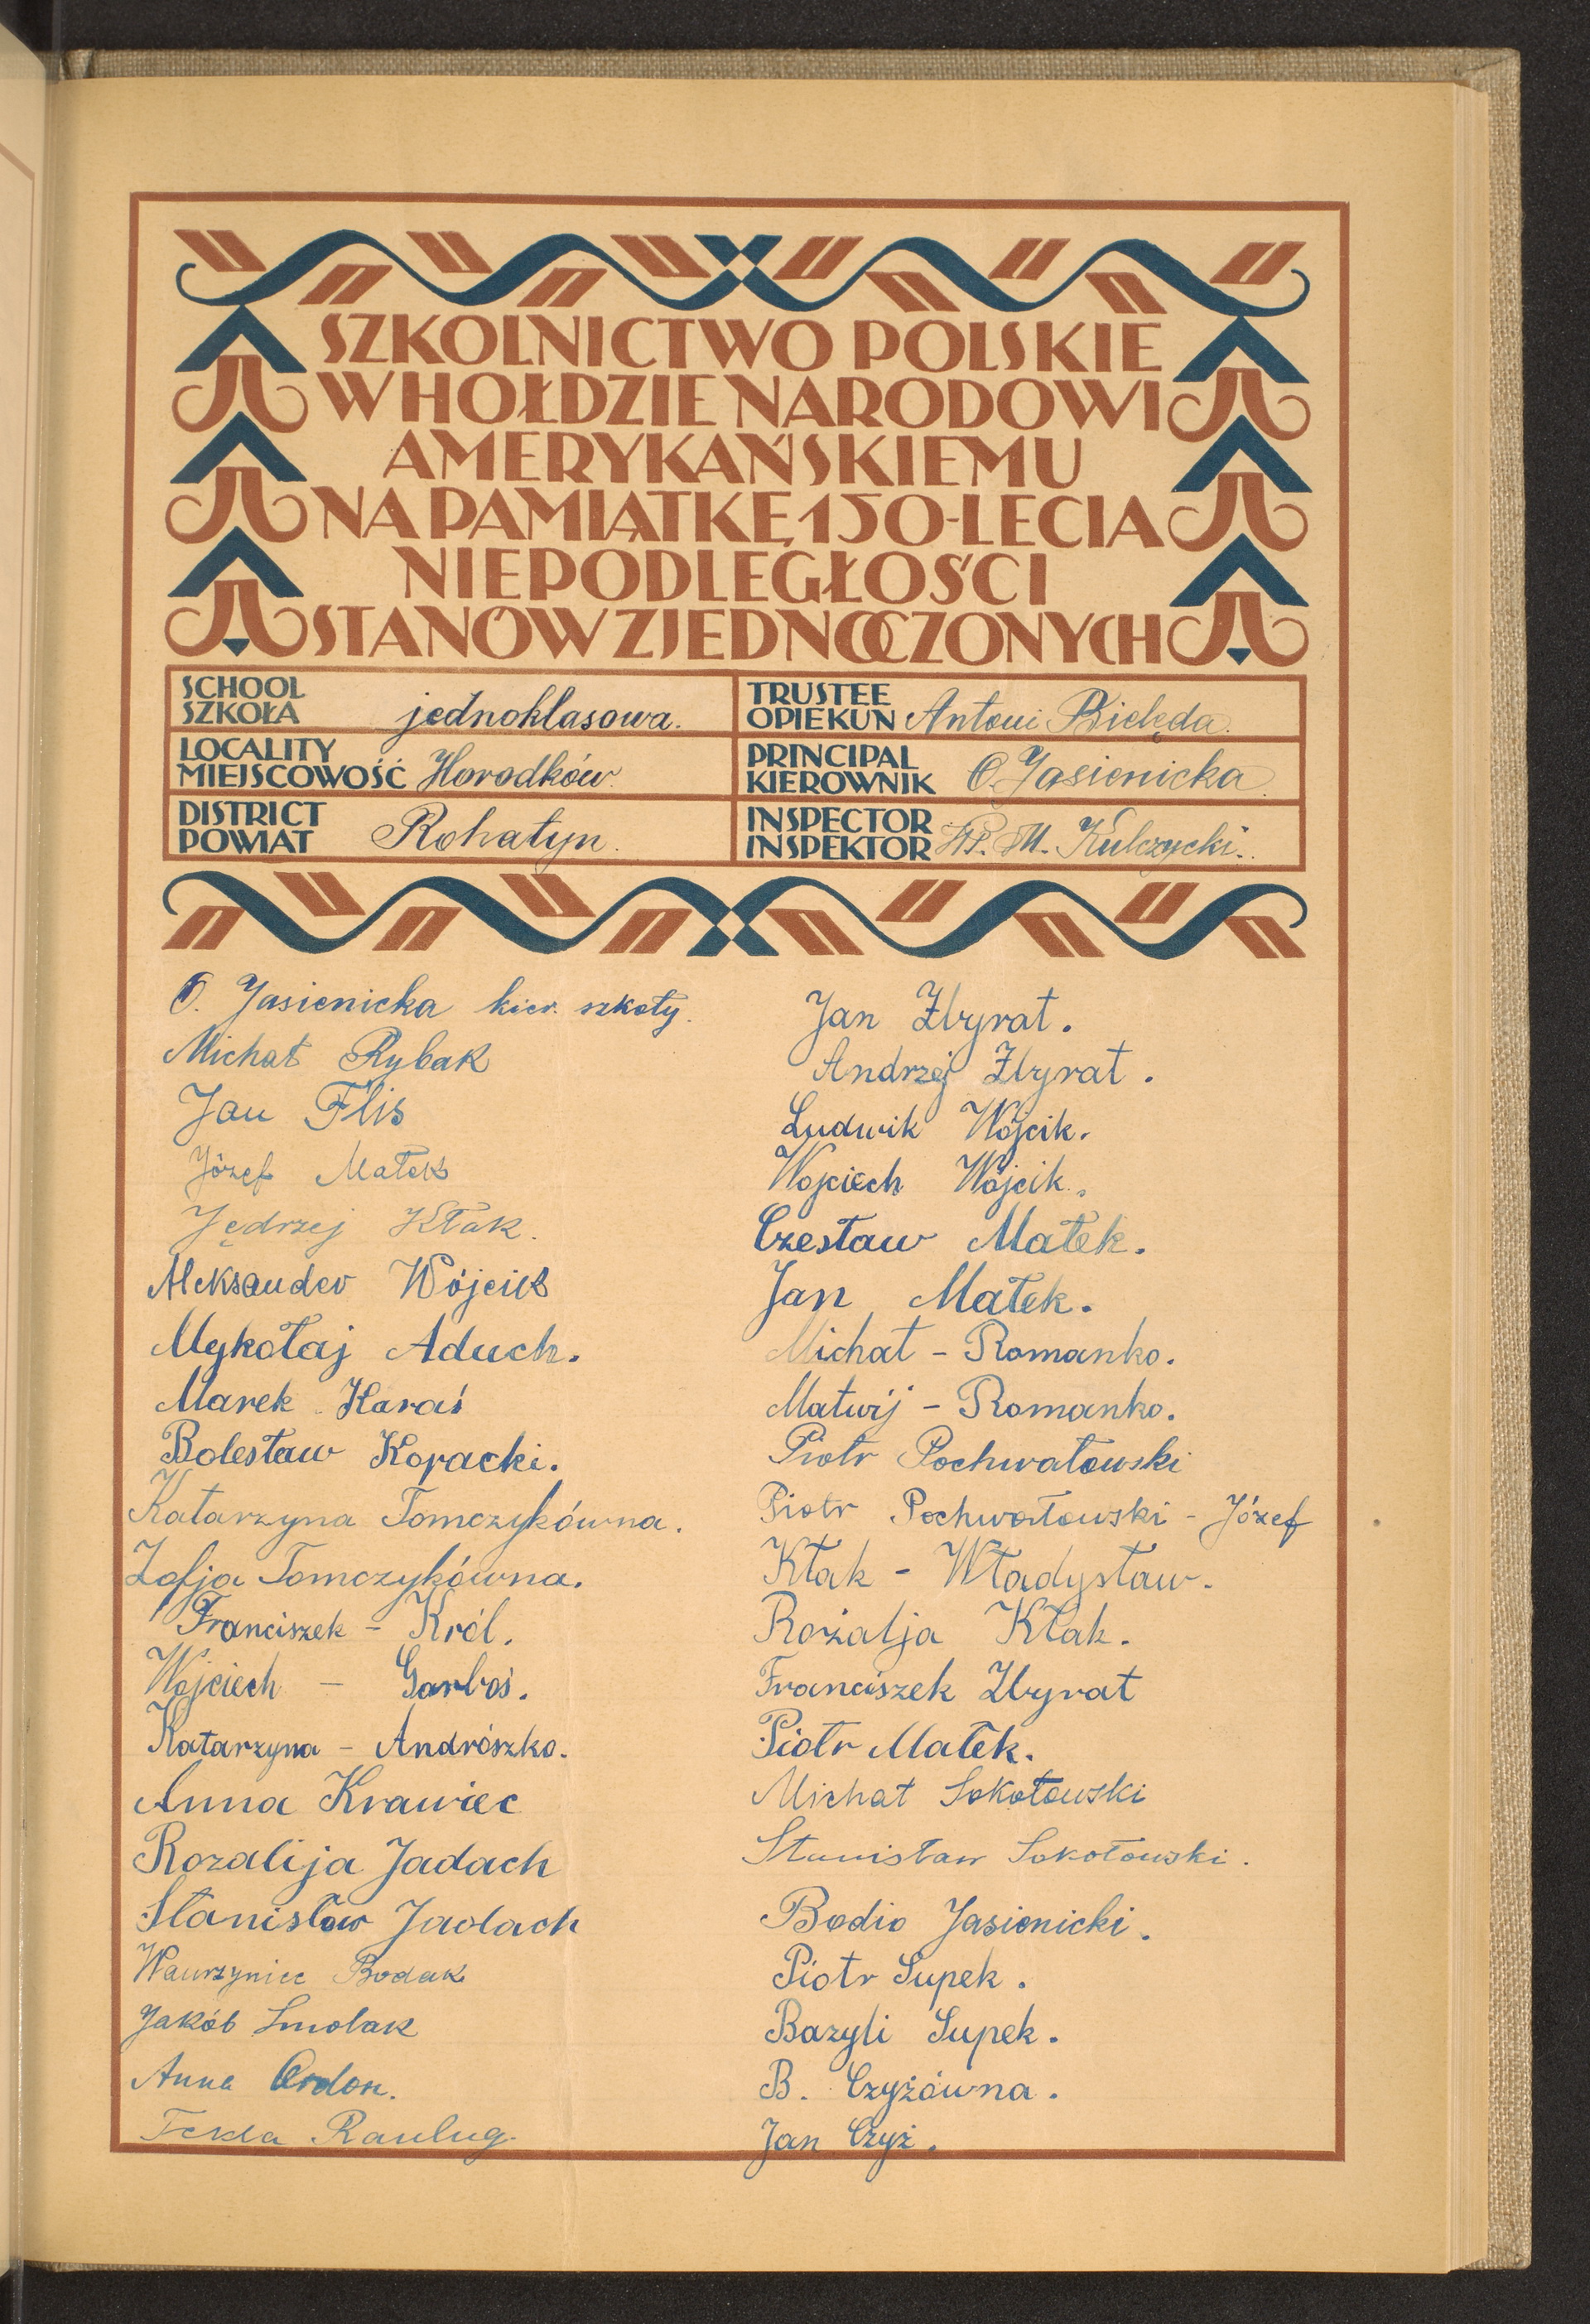 SZKOLNICTWO POLSKIE
W HOŁDZIE NARODOWI
AMERYKAŃSKIEMU
NA PAMIĄTKĘ 150-LECIA
NIEPODLEGŁOŚCI
STANÓW ZJEDNOCZONYCH
SCHOOL
SZKOŁA jednoklasowa.
LOCALITY
MIEJSCOWOŚĆ Horodków.
DISTRICT
POWIAT Rohatyn.
TRUSTEE
OPIEKUN Antoni Bielęda.
PRINCIPAL
KIEROWNIK O. Jasienicka.
INSPECTOR
INSPEKTOR M. Kulczycki.
O. Jasienicka kier. szkoły.
Michał Rybak
Jan Flis
Józef Małek
Jędrzej Kłak.
Aleksander Wójcik
Mykołaj Aduch.
Marek Haraś
Bolesław Kopacki.
Katarzyna Tomczykówna.
Zofja Tomczykówna.
Franciszek - Król.
Wojciech - Garboś.
Katarzyna - Andrószko.
Anna Krawiec
Rozalija Jadach
Stanisław Jadach
Wawrzyniec Bodak
Jakób Smolak
Anna Ordon.
Tekla
Jan Zbyrat.
Andrzej Zbyrat.
Ludwik Wójcik.
Wojciech Wójcik.
Czesław Małek.
Jan Małek.
Michał - Romanko.
Matwij - Romanko.
Piotr Pochwałowski
Piotr Pochwałowski - Józef
Kłak - Władysław.
Rozalja Kłak.
Franciszek Zbyrat
Piotr Małek.
Michał Sokołowski
Stanisław Sokołowski.
Bodio Jasienicki.
Piotr Supek.
Bazyli Supek.
B. Czyżówna.
Jan Czyż.